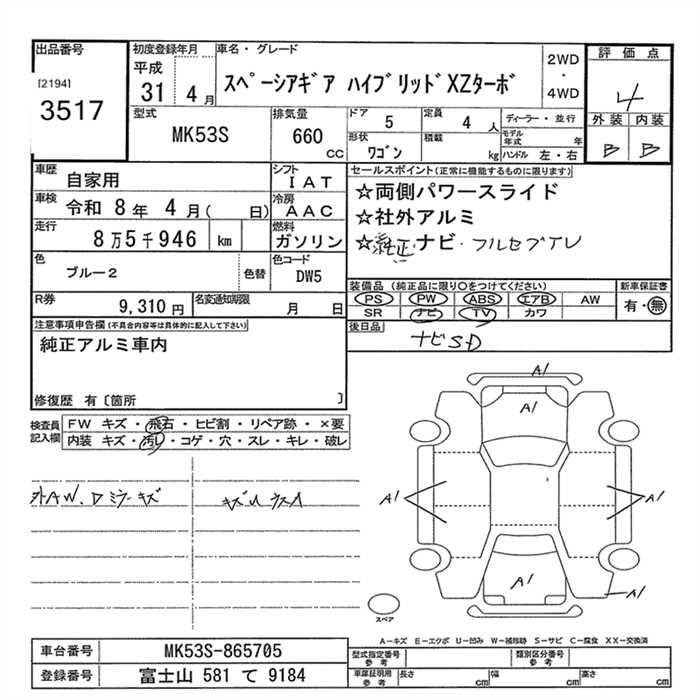 出品番号 初度登録年月 車名・グレード 評価点
[2194] 平成 2WD
3517 31 4月 スペーシアギア ハイブリッドXZターボ ・ 4
4WD
外装 内装
B B
型式 排気量 ドア 5 定員 4人 ディーラー・並行
MK53S 660cc 形状 ワゴン 積載 kg モデル年式 年
ハンドル 左・右
車歴 自家用 シフト IAT セールスポイント(正常に機能するものに限ります)
車検 令和 8年 4月( 日) 冷房 AAC ☆両側パワースライド
走行 8万5千946 km 燃料 ガソリン ☆社外アルミ
☆純正ナビ・フルセグTV
色 ブルー2 色替 色コード DW5
装備品(純正品に限り○をつけてください) 新車保証書
PS PW ABS エアB AW 有・無
SR ナビ TV カワ
R券 9,310円 名変通知期限 月 日
後日品 ナビSD
注意事項申告欄(不具合内容等は具体的に記入して下さい)
純正アルミ車内
修復歴 有〔箇所 〕
検査員記入欄 FW キズ・飛石・ヒビ割・リペア跡・×要
内装 キズ・汚レ・コゲ・穴・スレ・キレ・破レ
外AW.Dミラーキズ
A1
A1
A1 A1
A1 A1
スペア
A-キズ E-エクボ U-凹み W-補修跡 S-サビ C-腐食 XX-交換済
車台番号 MK53S-865705 型式指定番号 参考 類別区分番号 参考
登録番号 富士山 581 て 9184 車庫証明用 参考 長さ cm 幅 cm 高さ cm